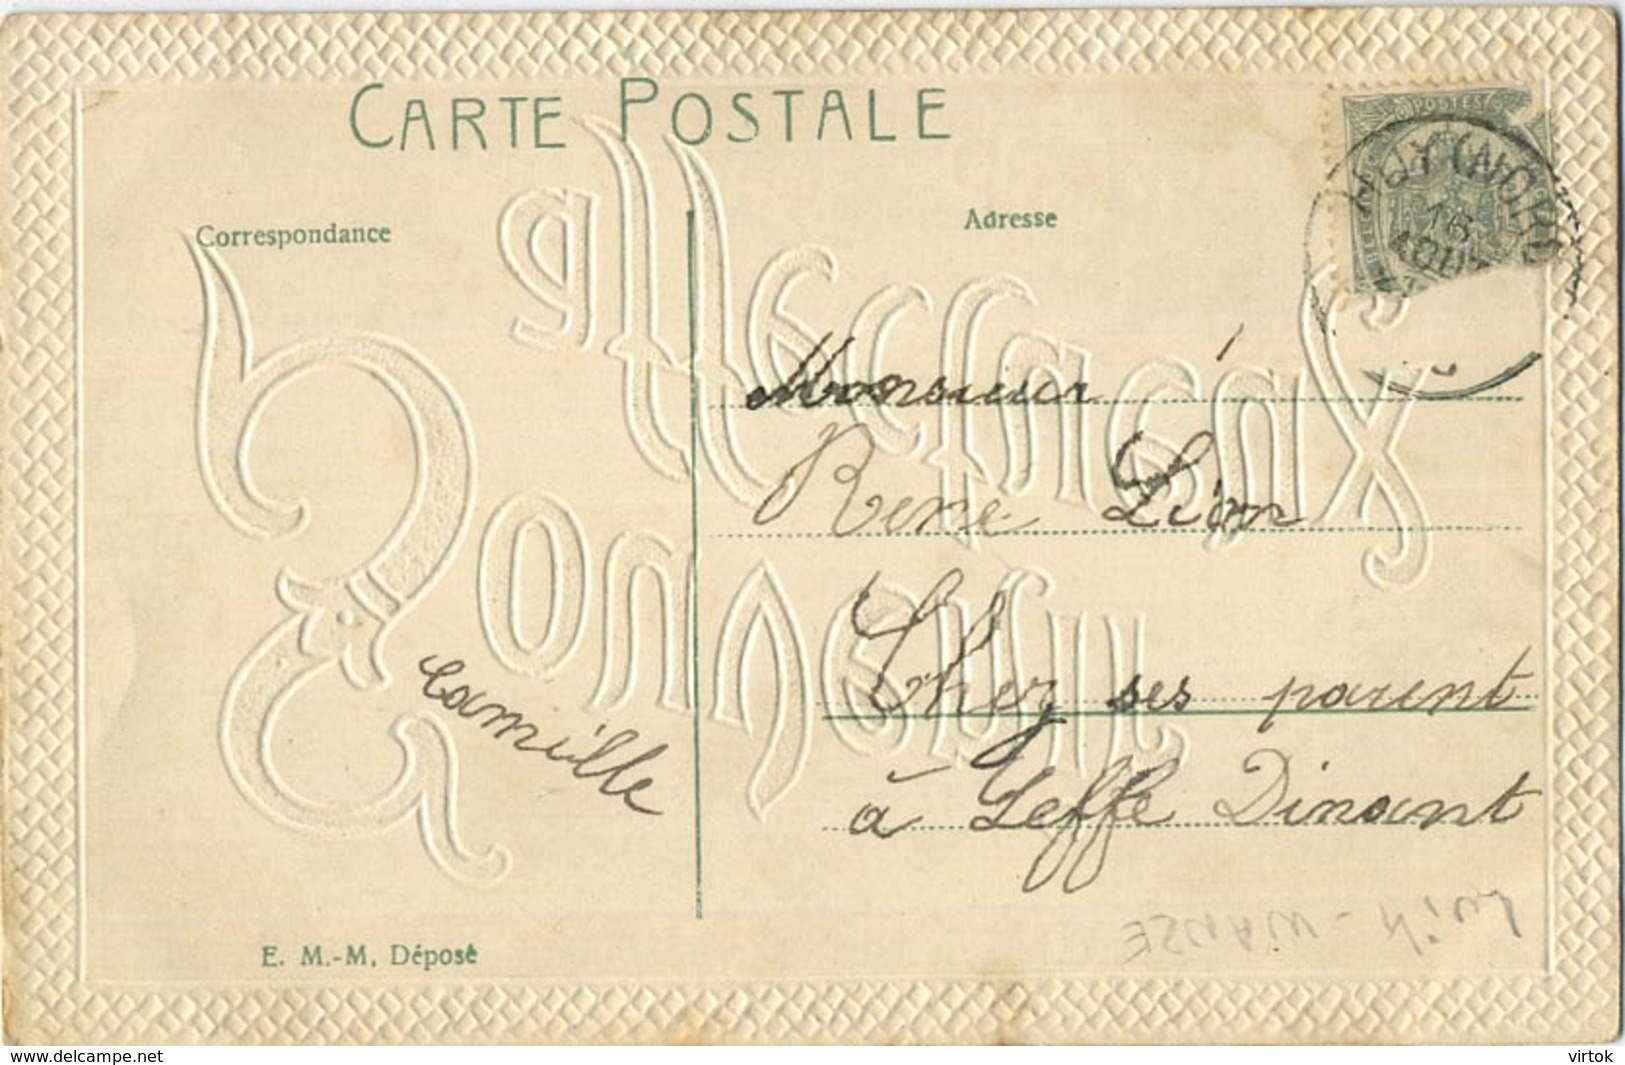 CARTE POSTALE
Correspondance
Adresse
POSTES
HUY (NORD)
16
AOUT
Heureux
Bonheur
Monsieur
René Léon
Chez ses parent
à Leffe Dinant
Camille
E. M.-M. Déposé
www.delcampe.net
virtok